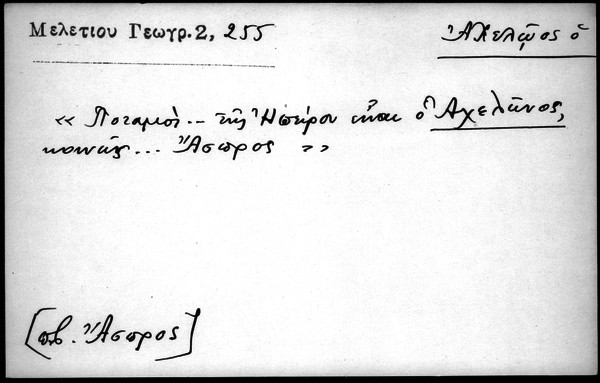 Μελετίου Γεωγρ. 2, 255
Ἀχελῷος ὁ
« Ποταμοὶ .. τῆς Ἠπείρου εἶναι ὁ Ἀχελῶος,
κοινῶς ... Ἄσπρος »
[πβ. Ἄσπρος]